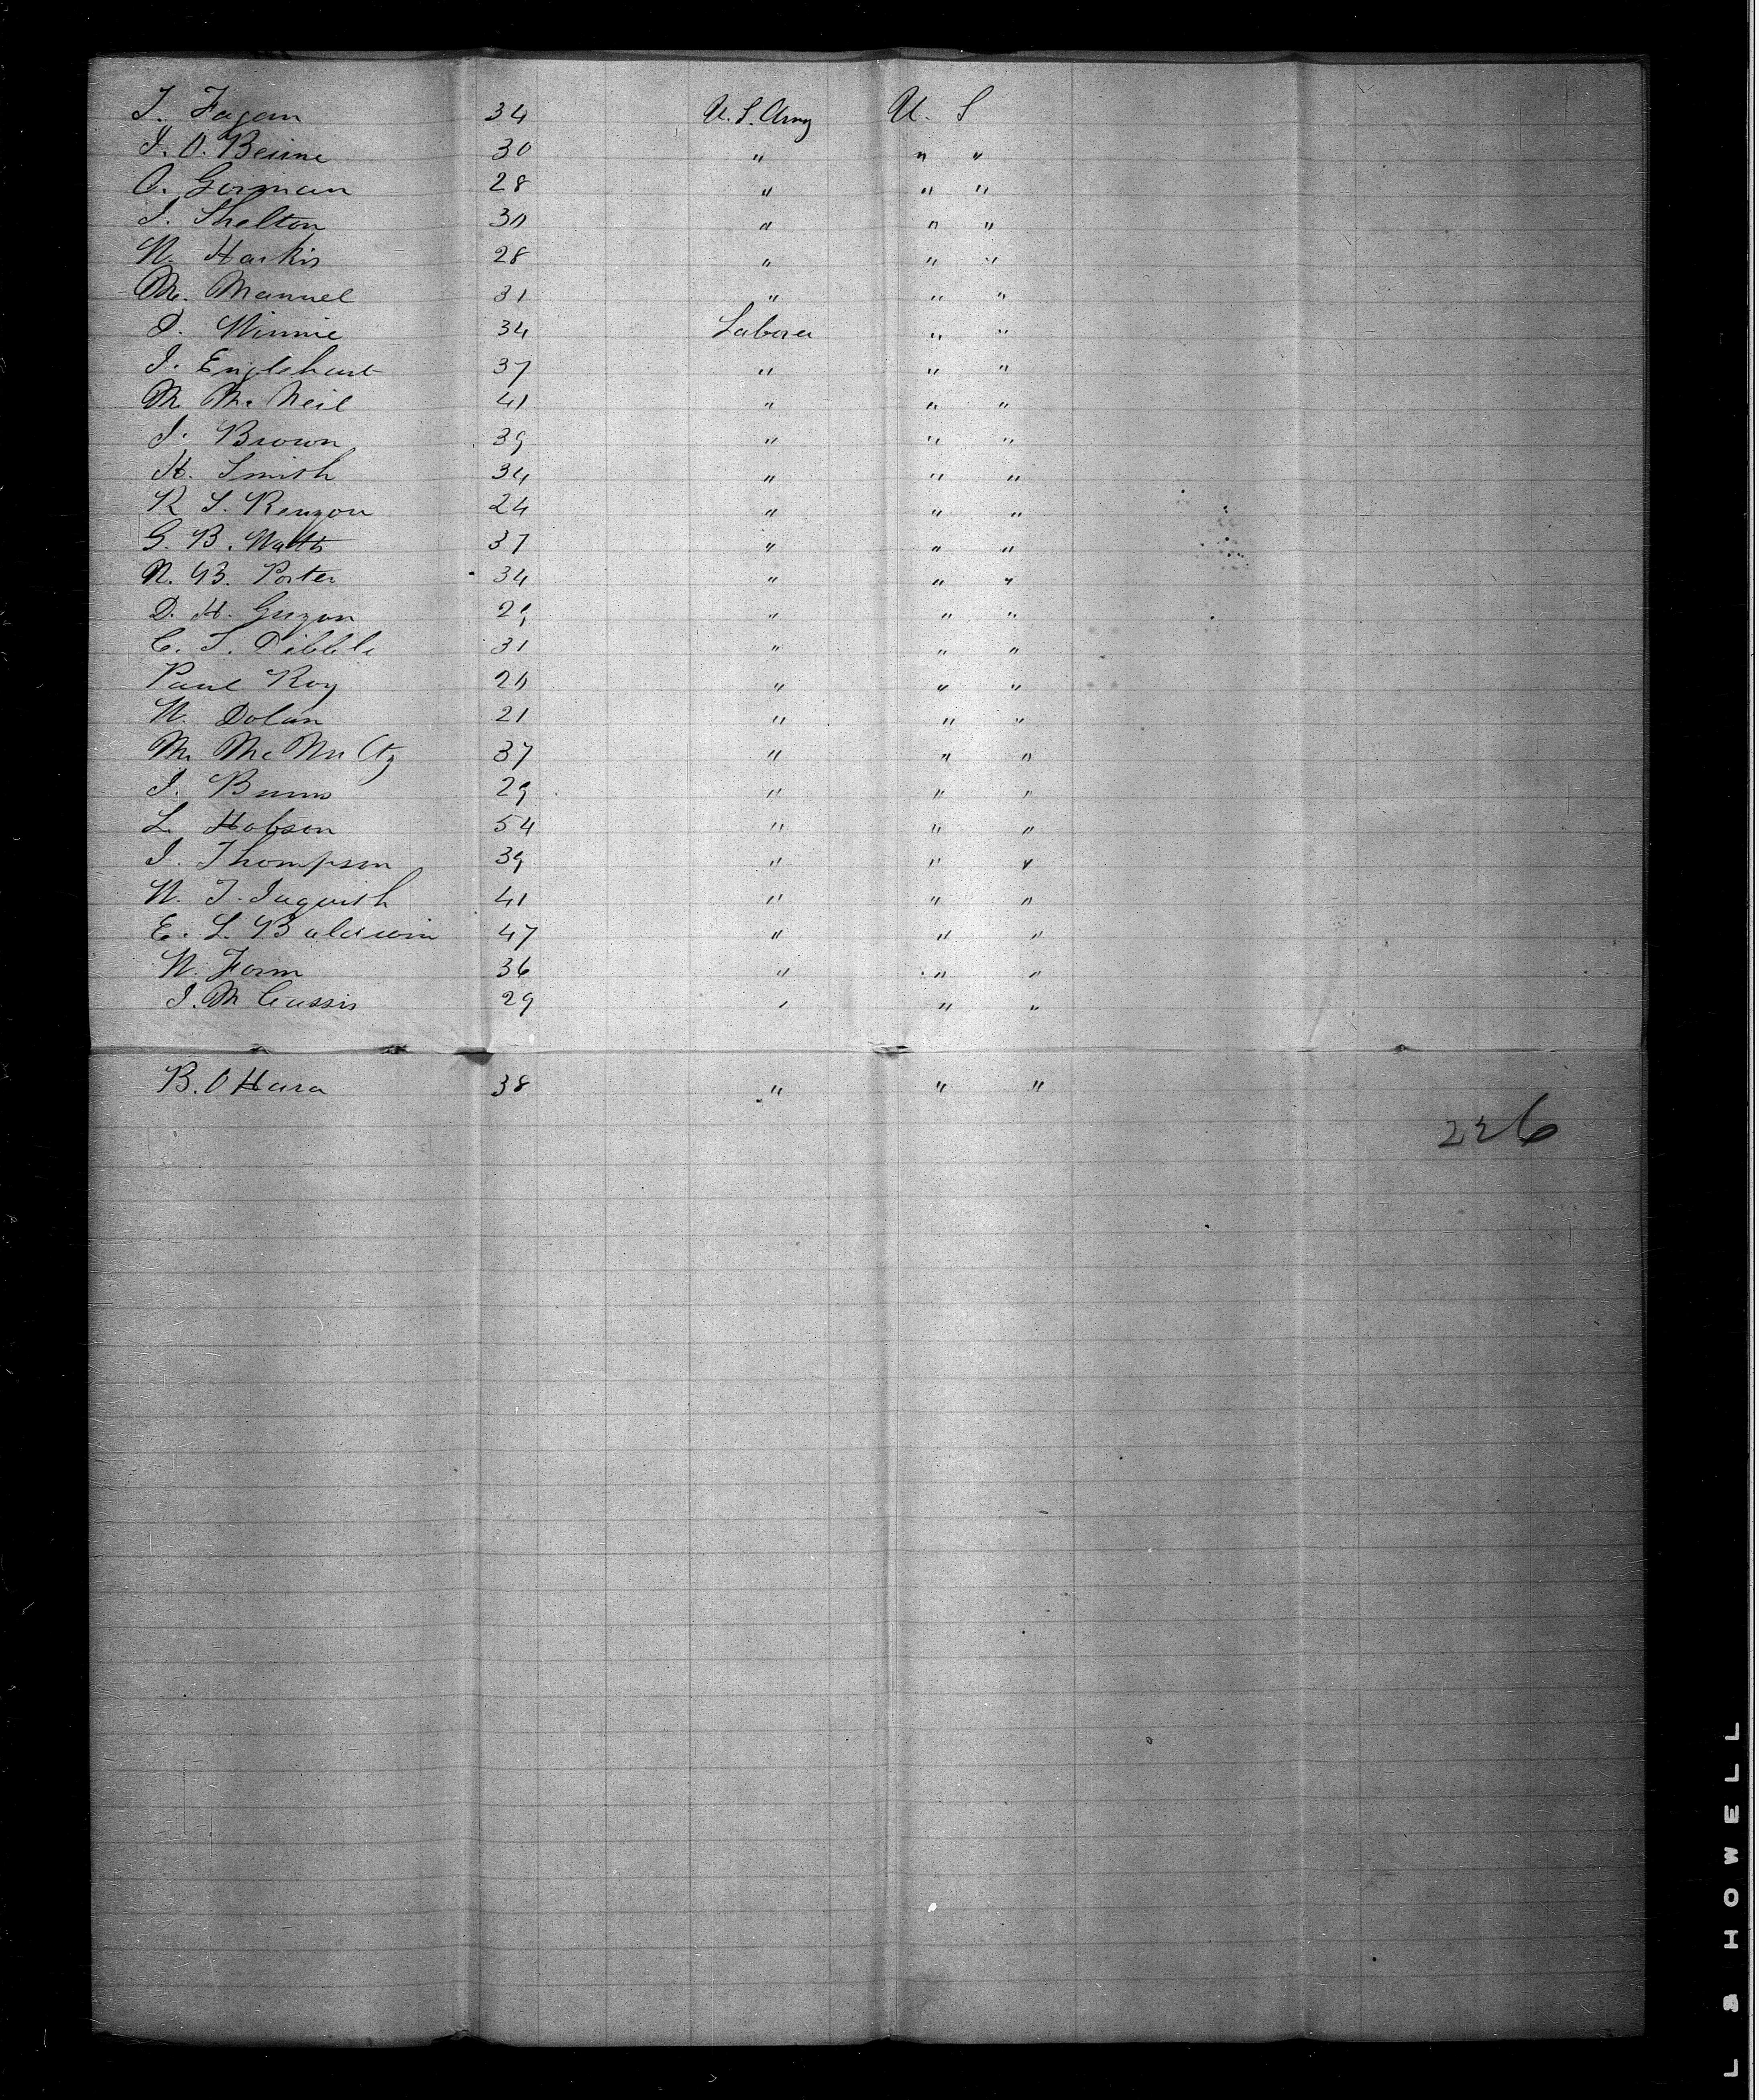 T. Fagan 34 U. S. Army U. S
J. O. Beirne 30 " " "
O. Gorman 28 " " "
J. Shelton 30 " " "
W. Harkis 28 " " "
M. Manuel 31 " " "
P. Winnie 34 Laborer " "
J. Englehart 37 " " "
M. Mc Neil 41 " " "
J. Brown 39 " " "
H. Smith 34 " " "
R S. Kenyon 24 " " "
G. B. Watts 37 " " "
N. B. Porter 34 " " "
D. H. 29 " " "
C. T. Dibble 31 " " "
Paul Roy 20 " " "
W. Dolan 21 " " "
M. Mc Nulty 37 " " "
J. Burns 29 " " "
L. Hobson 54 " " "
J. Thompson 39 " " "
W. T. Jaquith 41 " " "
E. L. Baldwin 47 " " "
W. Form 36 " " "
J. M 29 " " "
B. O Hara 38 " " "
226
L & HOWELL